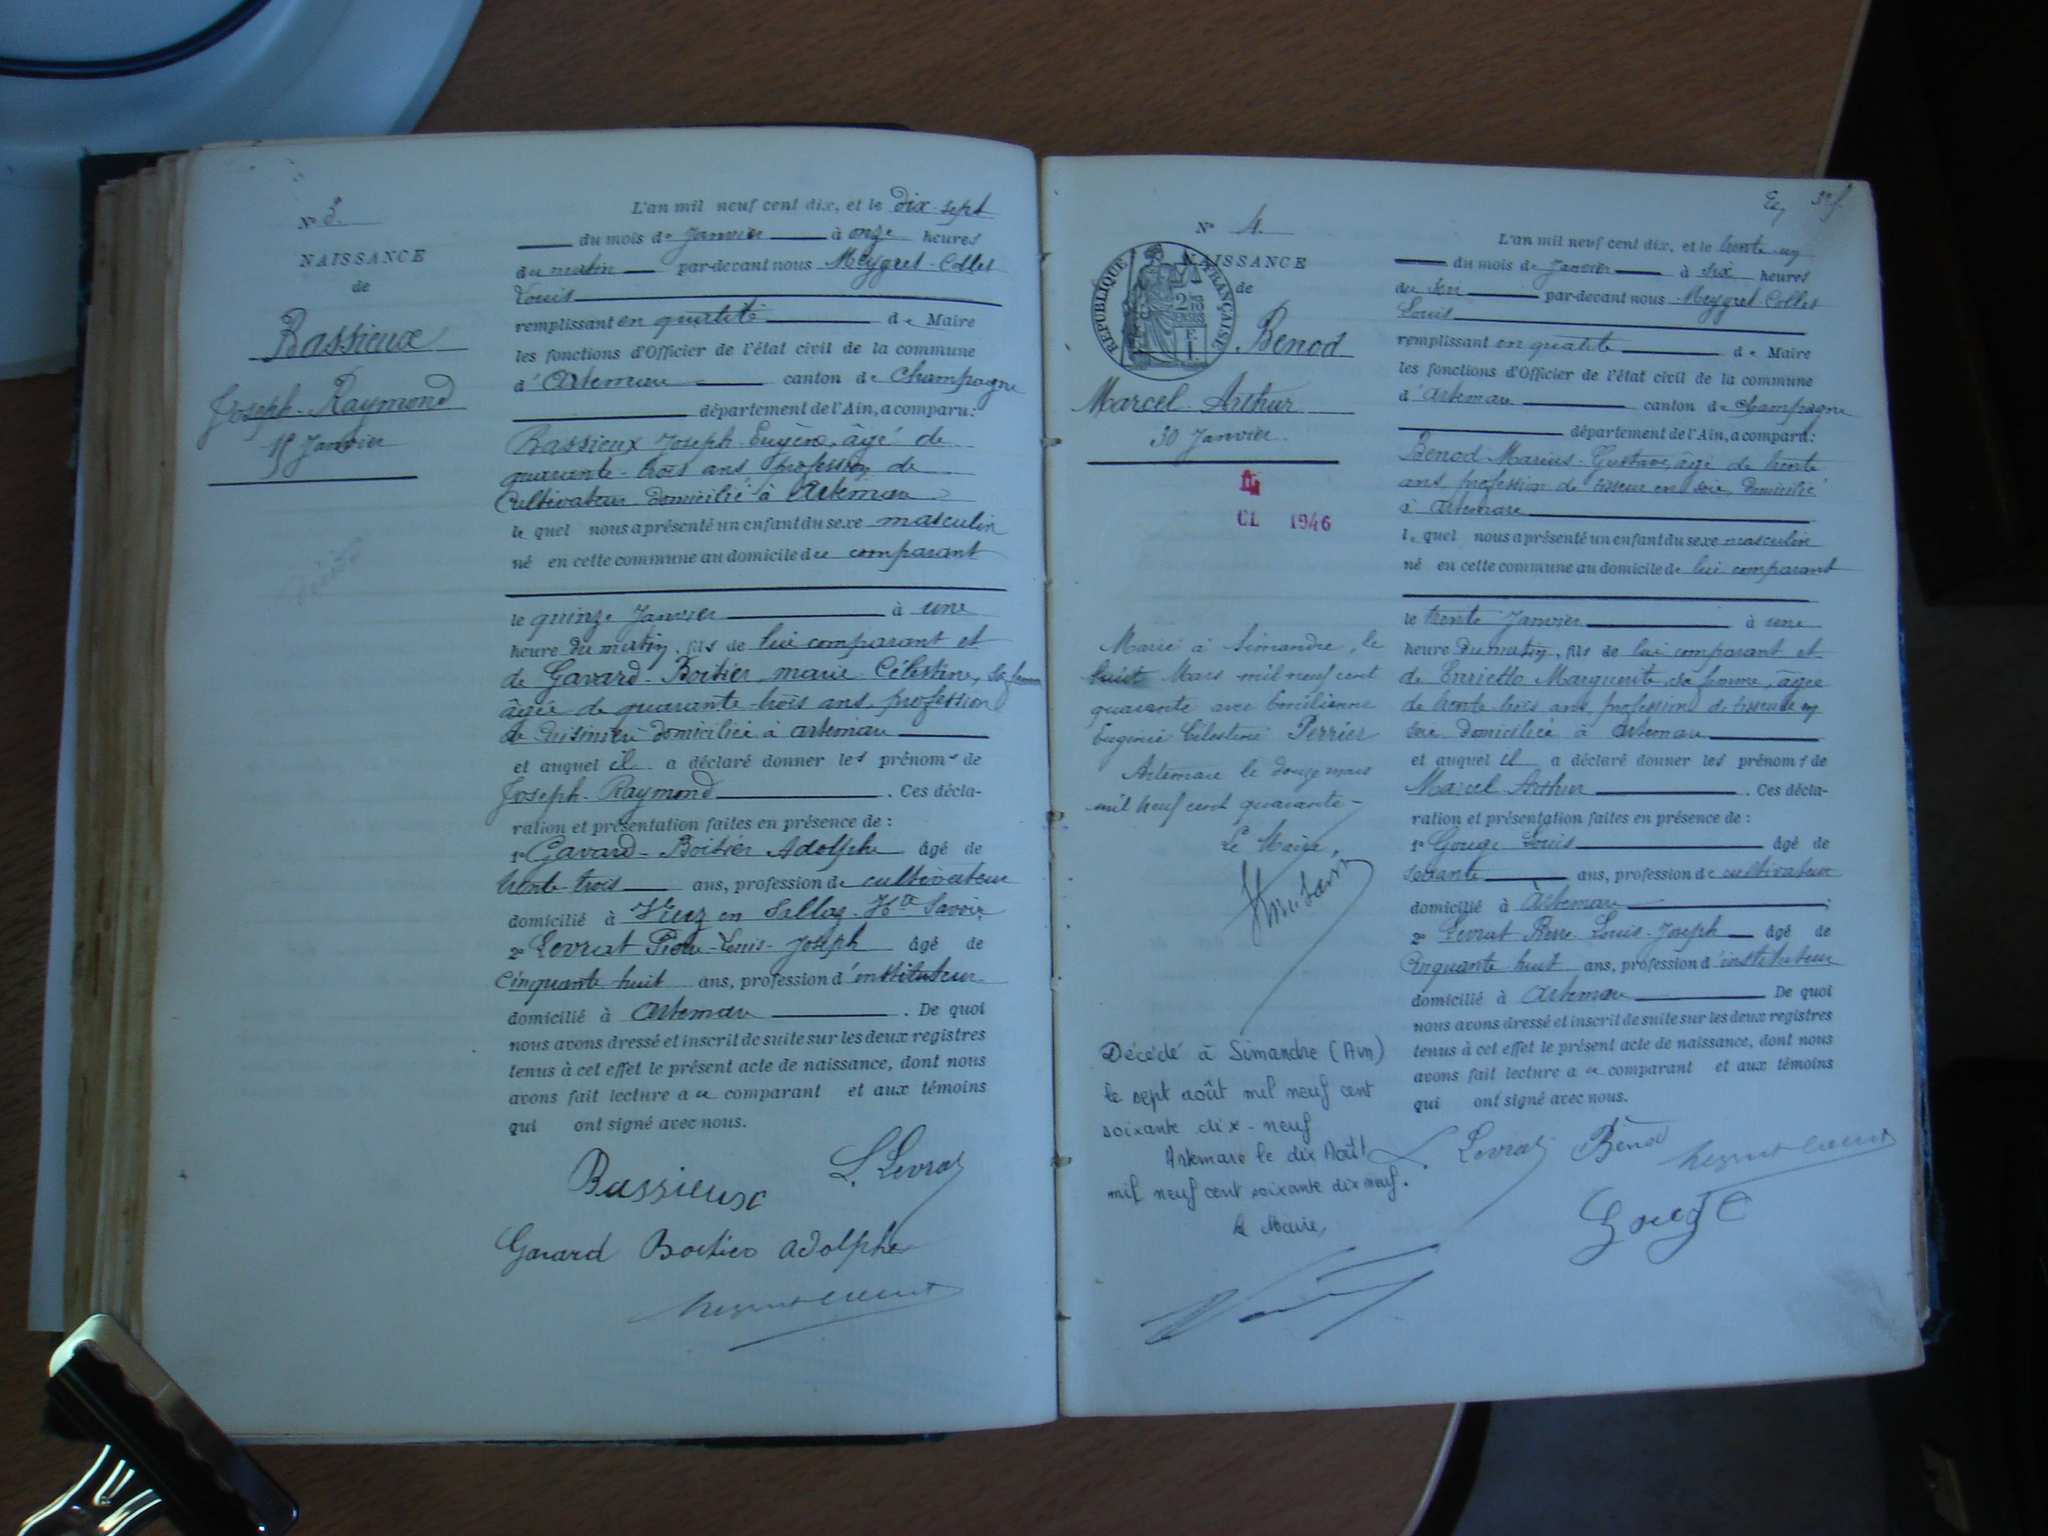 N° 3.
NAISSANCE
de
Bassieux
Joseph-Raymond
15 Janvier
L'an mil neuf cent dix, et le dix-sept
du mois de Janvier à onze heures
du matin par-devant nous Meygret-Collet
Louis
remplissant en qualité de Maire
les fonctions d'Officier de l'état civil de la commune
d'Artemare canton de Champagne
département de l'Ain, a comparu:
Bassieux Joseph-Eugène, âgé de
quarante-trois ans profession de
Cultivateur domicilié à Artemare
le quel nous a présenté un enfant du sexe masculin
né en cette commune au domicile du comparant
le quinze Janvier à une
heure du matin, fils de lui comparant et
de Gavard-Boitier marie Célestine, sa femme
âgée de quarante-trois ans, profession
de cuisinière domiciliée à artemare
et auquel il a déclaré donner les prénoms de
Joseph-Raymond. Ces décla-
ration et présentation faites en présence de :
1° Gavard-Boitier Adolphe âgé de
trente-trois ans, profession de cultivateur
domicilié à Viuz en Sallaz Hte Savoie
2° Levrat Pierre-Louis-Joseph âgé de
Cinquante huit ans, profession d'instituteur
domicilié à Artemare. De quoi
nous avons dressé et inscrit de suite sur les deux registres
tenus à cet effet le présent acte de naissance, dont nous
avons fait lecture au comparant et aux témoins
qui ont signé avec nous.
Bassieux L. Levrat
Gavard Boitier Adolphe
N° 4.
NAISSANCE
de
RÉPUBLIQUE FRANÇAISE
Benod
Marcel Arthur
30 Janvier
1946
Marié à Simandre, le
huit Mars mil neuf cent
quarante avec Emilienne
Eugénie Célestine Perrier
Artemare le douze mars
mil neuf cent quarante-
Le Maire,
Décédé à Simandre (Ain)
le sept août mil neuf cent
soixante dix-neuf
Artemare le dix Août
mil neuf cent soixante dix neuf.
le Maire,
L'an mil neuf cent dix, et le trente-un
du mois de Janvier à six heures
du soir par-devant nous Meygret-Collet
Louis
remplissant en qualité de Maire
les fonctions d'Officier de l'état civil de la commune
d'Artemare canton de Champagne
département de l'Ain, a comparu:
Benod Marius-Gustave, âgé de trente
ans, profession de tisseur en soie, domicilié
à Artemare
le quel nous a présenté un enfant du sexe masculin
né en cette commune au domicile de lui comparant
le trente Janvier à une
heure du matin, fils de lui comparant et
de Enrietto Marguerite, sa femme, âgée
de trente-trois ans, profession de tisseuse en
soie domiciliée à Artemare
et auquel il a déclaré donner les prénoms de
Marcel Arthur. Ces décla-
ration et présentation faites en présence de :
1° Gouge Louis âgé de
soixante ans, profession de cultivateur
domicilié à Artemare;
2° Levrat Pierre-Louis-Joseph âgé de
Cinquante huit ans, profession d'instituteur
domicilié à Artemare De quoi
nous avons dressé et inscrit de suite sur les deux registres
tenus à cet effet le présent acte de naissance, dont nous
avons fait lecture au comparant et aux témoins
qui ont signé avec nous.
L. Levrat Bénod
Gouge